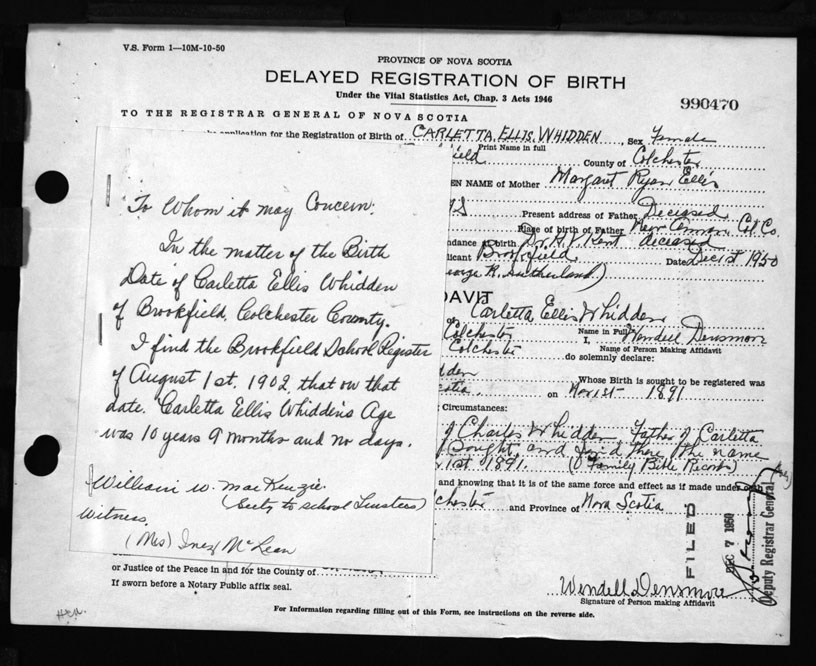 V.S. Form 1—10M-10-50
PROVINCE OF NOVA SCOTIA
DELAYED REGISTRATION OF BIRTH
Under the Vital Statistics Act, Chap. 3 Acts 1946
990470
TO THE REGISTRAR GENERAL OF NOVA SCOTIA
application for the Registration of Birth of CARLETTA ELLIS WHIDDEN Sex Female
Print Name in full
field County of Colchester
EN NAME of Mother Margaret Ryan Ellis
Present address of Father Deceased
Place of birth of Father New Annan Col Co.
ndance at birth Dr. H.V. Kent deceased
licant Brookfield Date Dec 1st 1950
eorge R. Sutherland)
To Whom it may Concern.
In the matter of the Birth
Date of Carletta Ellis Whidden
of Brookfield, Colchester County.
I find the Brookfield School Register
of August 1st, 1902, that on that
date. Carletta Ellis Whiddens Age
was 10 years 9 months and no days.
William W. MacKenzie
(Secty to school Trusters)
Witness.
(Mrs) Inez McLean
DAVIT
Carletta Ellis Whidden
Name in Full
Colchester I, Wendell Densmore
Name of Person Making Affidavit
Colchester do solemnly declare:
dden Whose Birth is sought to be registered was
cotia. on Nov 1st 1891
Circumstances:
of Charles Whidden Father of Carletta
Sought, and find there the name
1st 1891. (Family Bible Records)
and knowing that it is of the same force and effect as if made under oath
chester and Province of Nova Scotia
FILED
DEC 7 1950
Deputy Registrar General
or Justice of the Peace in and for the County of
If sworn before a Notary Public affix seal.
Wendell Densmore
Signature of Person making Affidavit
For Information regarding filling out of this Form, see instructions on the reverse side.